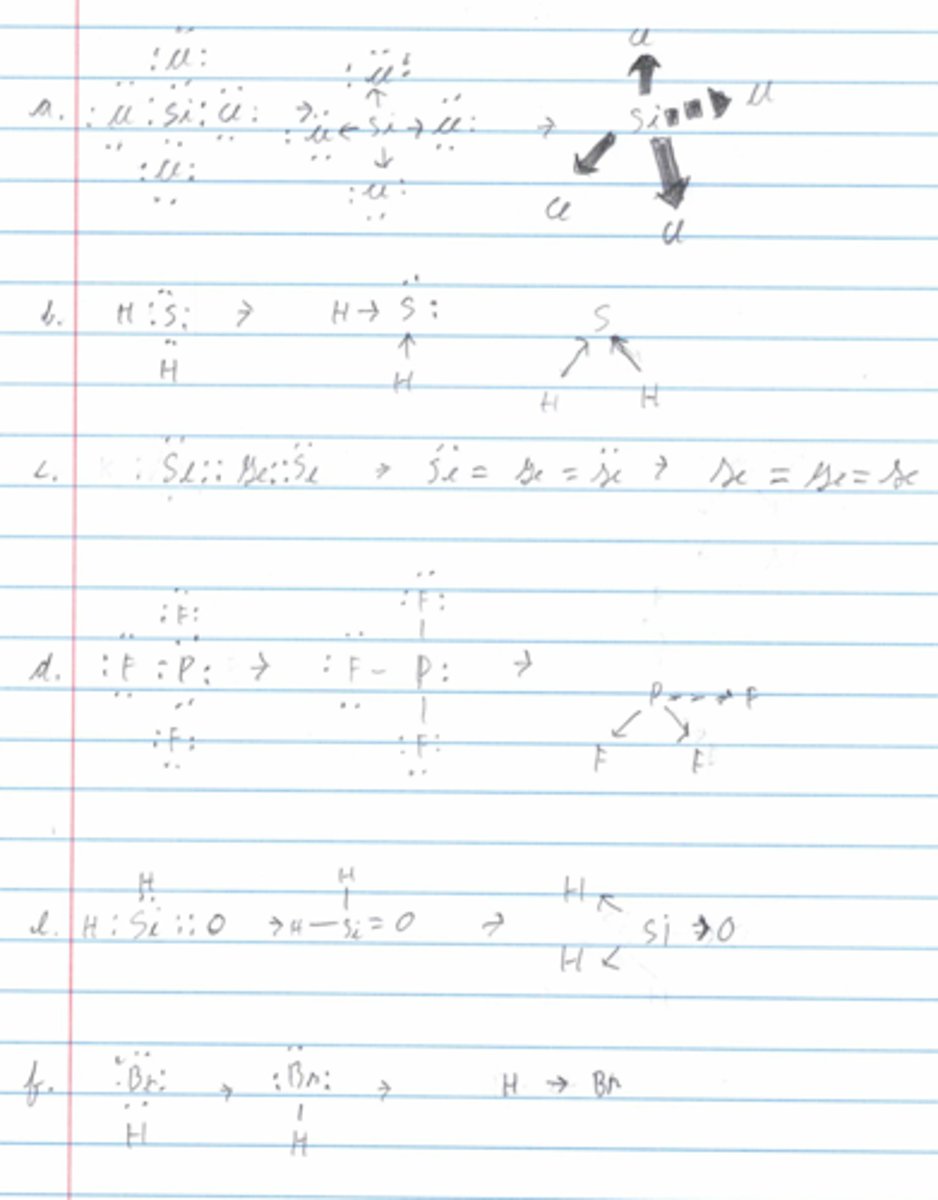 :Cl: :Cl: Cl
↑
a. :Cl:Si:Cl: → :Cl←Si→Cl: → Si Cl
↓
:Cl: :Cl: Cl Cl
b. H:S: → H→S: S
↑
H H H H
c. Se::Ge::Se → Se=Ge=Se → Se=Ge=Se
:F: :F:
|
d. :F:P: → :F-P: → P F
|
:F: :F: F F
H H H
|
e. H:Si::O → H-Si=O → Si→O
H
f. :Br: → :Br: → H→Br
|
H H